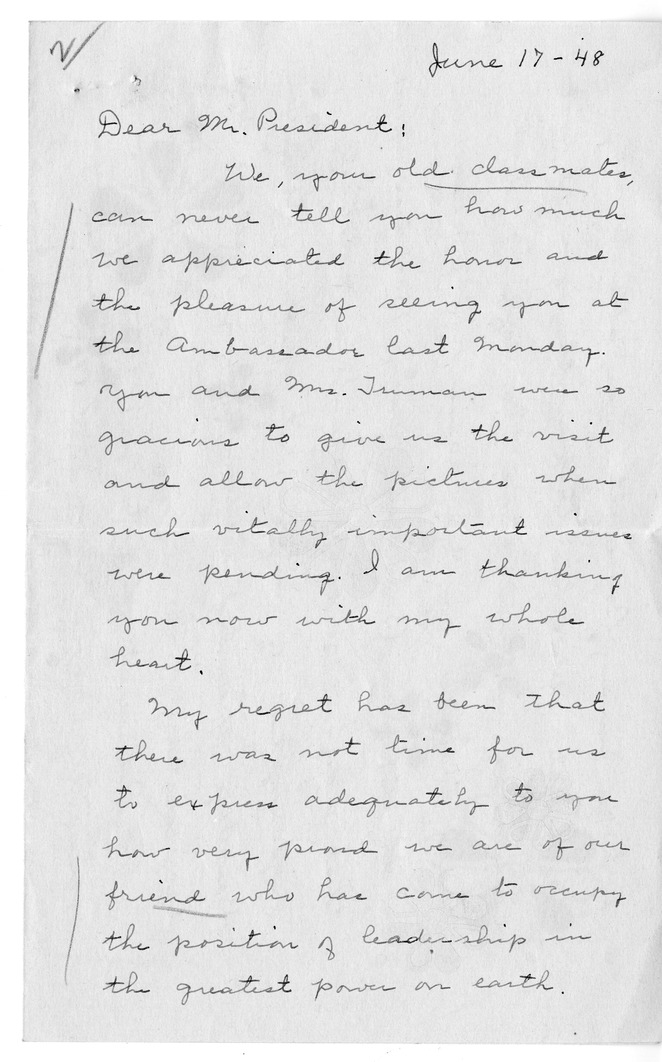 2
June 17 - 48
Dear Mr. President:
We, your old classmates,
can never tell you how much
we appreciated the honor and
the pleasure of seeing you at
the Ambassador last Monday.
You and Mrs. Truman were so
gracious to give us the visit
and allow the pictures when
such vitally important issues
were pending. I am thanking
you now with my whole
heart.
My regret has been that
there was not time for us
to express adequately to you
how very proud we are of our
friend who has come to occupy
the position of leadership in
the greatest power on earth.